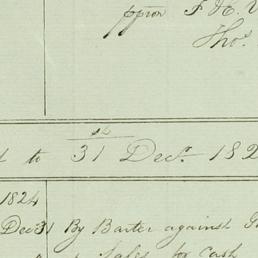 ppron F. H.
Thos.
to 31st Decr. 182
1824
Dec 31 By Barter against
Sales for Cash